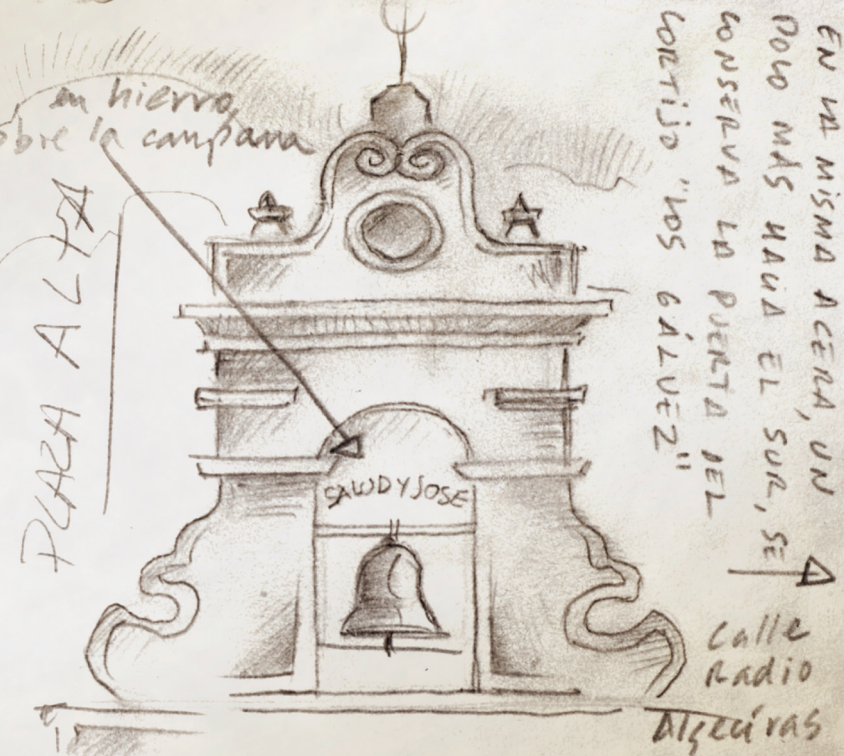 en hierro,
sobre la campana
PLAZA ALTA
SALUD Y JOSE
EN LA MISMA ACERA, UN
POCO MÁS HACIA EL SUR, SE
CONSERVA LA PUERTA DEL
CORTIJO "LOS GÁLVEZ"
Calle
Radio
Algeciras